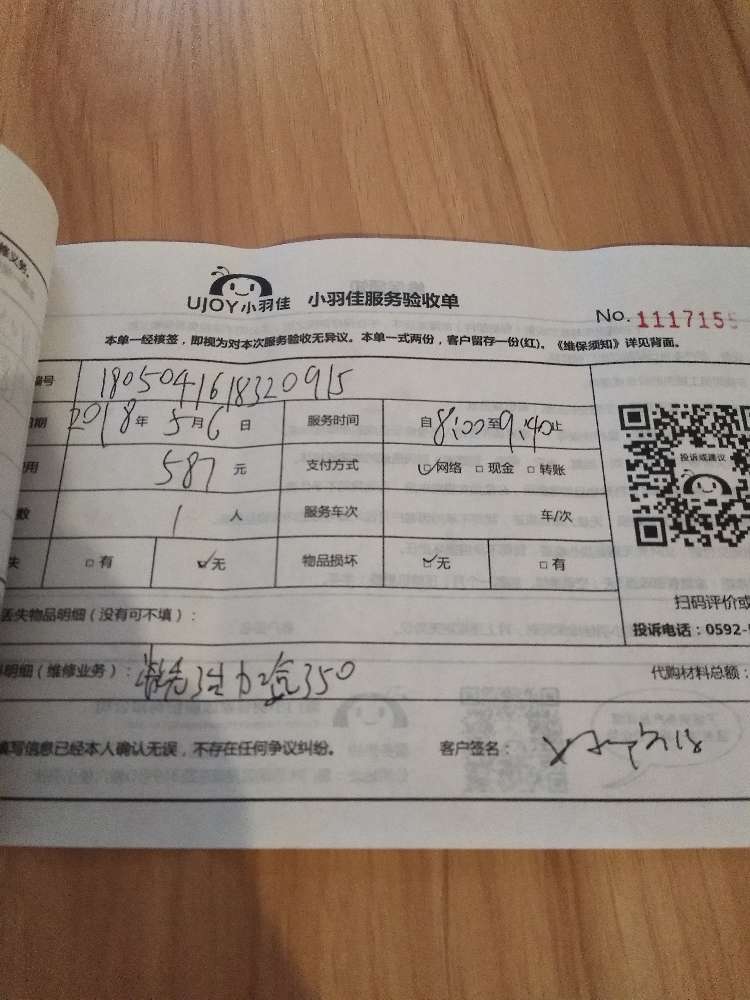 UJOY小羽佳 小羽佳服务验收单
No. 1117155
本单一经核签，即视为对本次服务验收无异议。本单一式两份，客户留存一份(红)。《维保须知》详见背面。
编号 1805041618320915
期 2018年5月6日 服务时间 自8:00至9:40止
用 587元 支付方式 网络 现金 转账
数 1人 服务车次 车/次
失 有 无 物品损坏 无 有
投诉或建议
扫码评价或
丢失物品明细（没有可不填）：
投诉电话：0592-
明细（维修业务）： 350
代购材料总额：
填写信息已经本人确认无误，不存在任何争议纠纷。 客户签名：